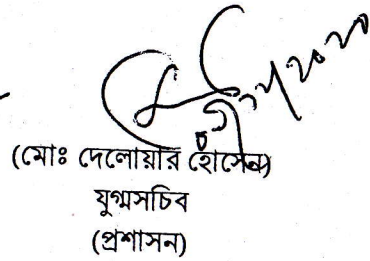 (মোঃ দেলোয়ার হোসেন)
যুগ্মসচিব
(প্রশাসন)